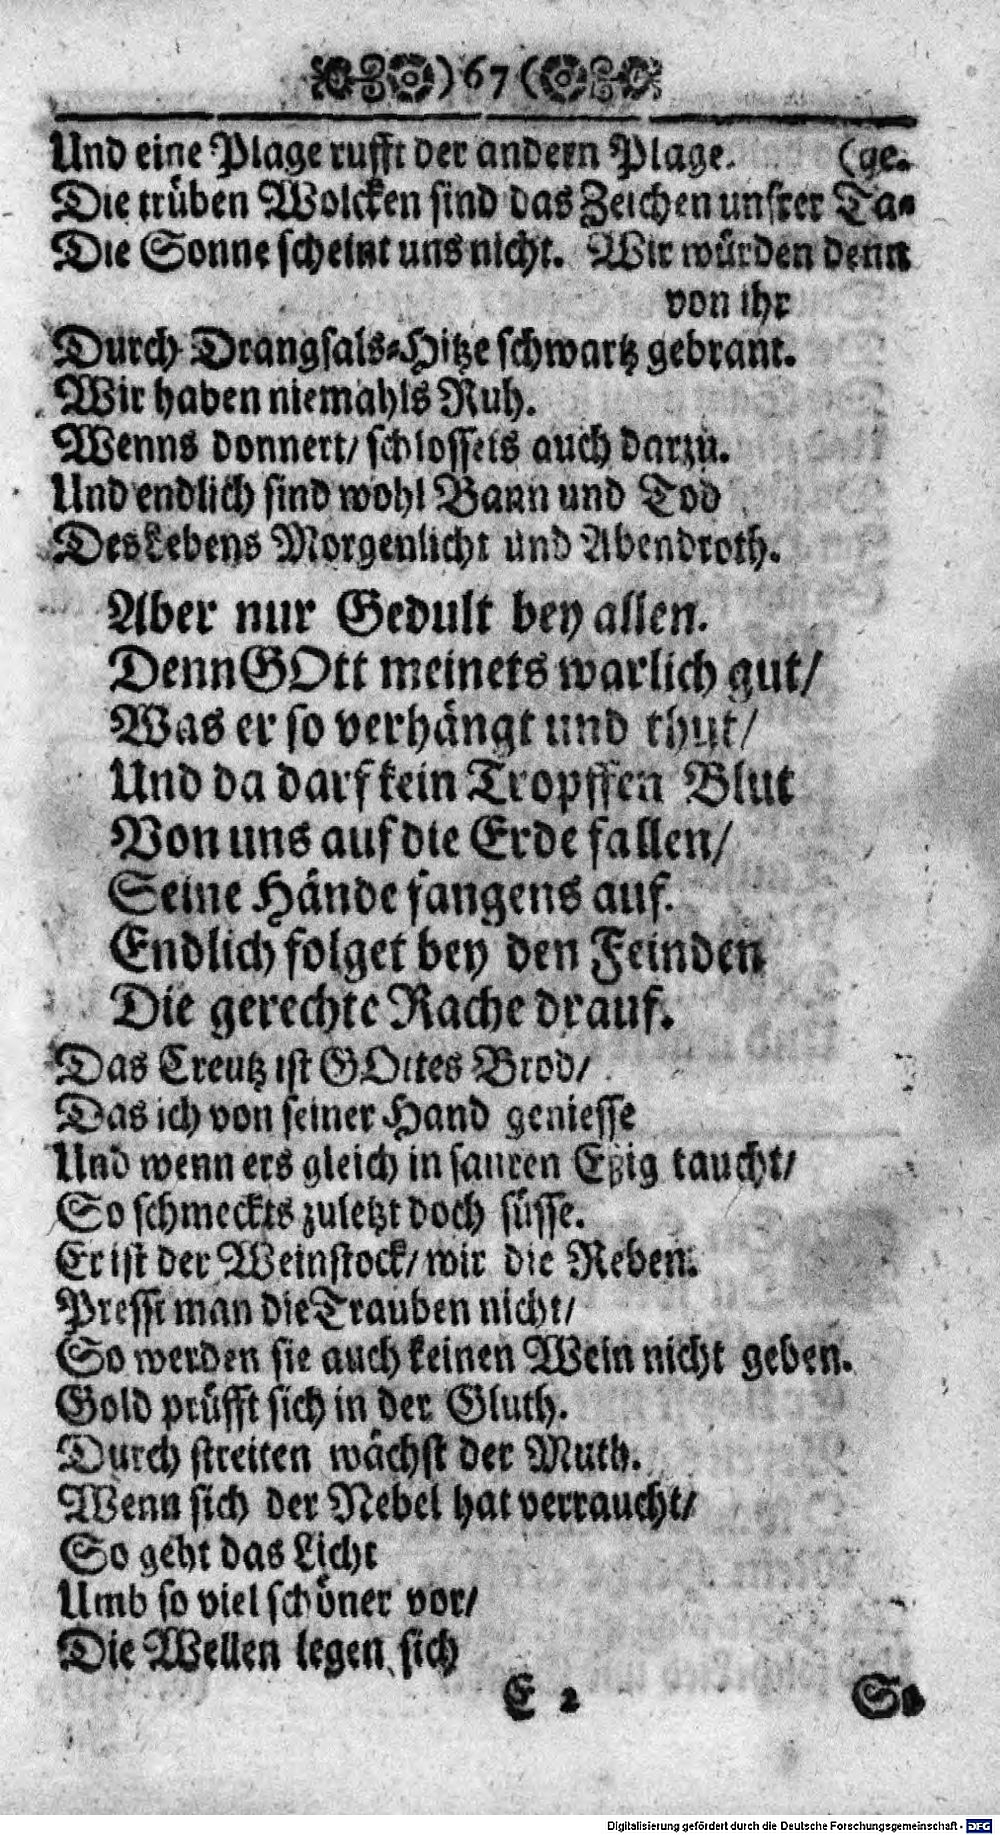 ) 67 (
Und eine Plage rufft der andern Plage. (ge.
Die trüben Wolcken sind das Zeichen unsrer Ta-
Die Sonne scheint uns nicht. Wir würden denn
von ihr
Durch Drangsals-Hitze schwartz gebrant.
Wir haben niemahls Ruh.
Wenns donnert/ schlossets auch darzu.
Und endlich sind wohl Bann und Tod
Des Lebens Morgenlicht und Abendroth.
Aber nur Gedult bey allen.
Denn GOtt meinets warlich gut/
Was er so verhängt und thut/
Und da darf kein Tropffen Blut
Von uns auf die Erde fallen/
Seine Hände fangens auf.
Endlich folget bey den Feinden
Die gerechte Rache drauf.
Das Creutz ist GOttes Brod/
Das ich von seiner Hand geniesse
Und wenn ers gleich in sauren Eßig taucht/
So schmeckts zuletzt doch süsse.
Er ist der Weinstock/ wir die Reben.
Presst man die Trauben nicht/
So werden sie auch keinen Wein nicht geben.
Gold prüfft sich in der Gluth.
Durch streiten wächst der Muth.
Wenn sich der Nebel hat verraucht/
So geht das Licht
Umb so viel schöner vor/
Die Wellen legen sich
E 2 So
Digitalisierung gefördert durch die Deutsche Forschungsgemeinschaft - DFG